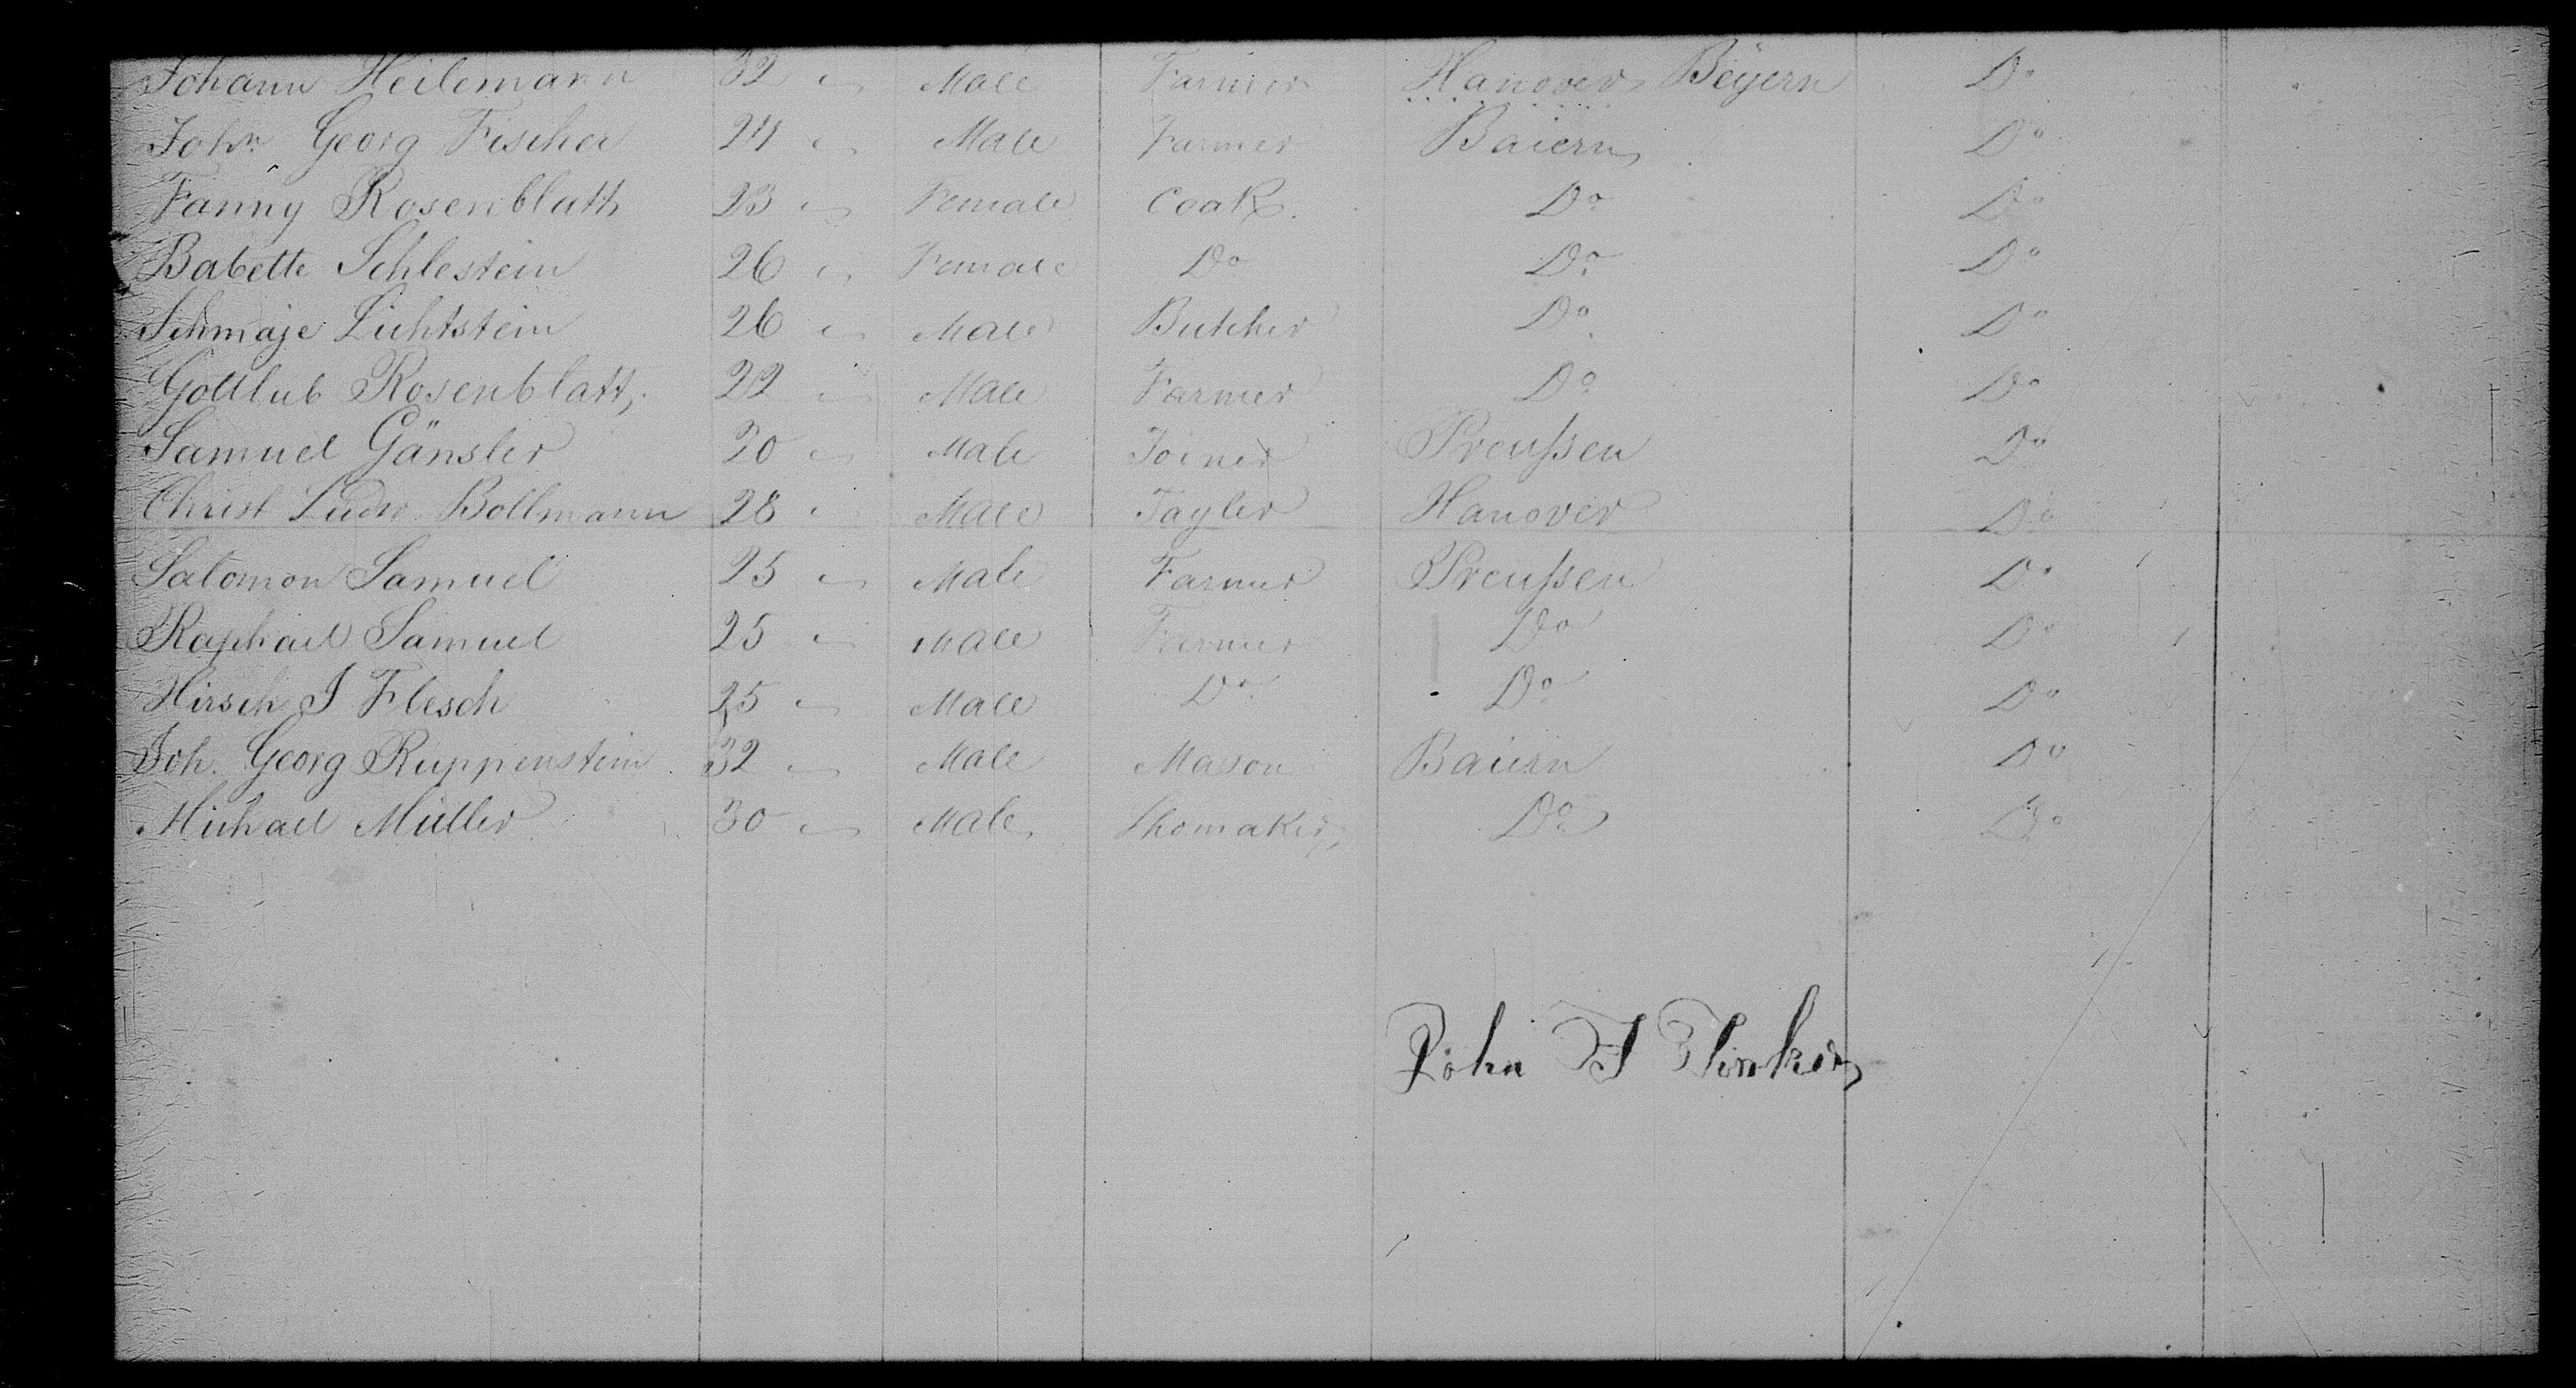 Johann Heilemann 32 Male Farmer Hanover Beÿern Do
John Georg Fischer 24 Male Farmer Baiern Do
Fanny Rosenblatt 23 Female Cook Do Do
Babette Schlestein 26 Female Do Do Do
Schmaje Lichtstein 26 Male Butcher Do Do
Gottlieb Rosenblatt 22 Male Farmer Do Do
Samuel Gänsler 20 Male Joiner Preußen Do
Christ Ludw Bollmann 28 Male Tayler Hanover Do
Salomon Samuel 25 Male Farmer Preußen Do
Raphael Samuel 25 Male Farmer Do Do
Hirsch J Flesch 25 Male Do Do Do
Joh. Georg Ruppenstein 32 Male Mason Baiern Do
Michael Müller 30 Male Shomaker Do Do
John F